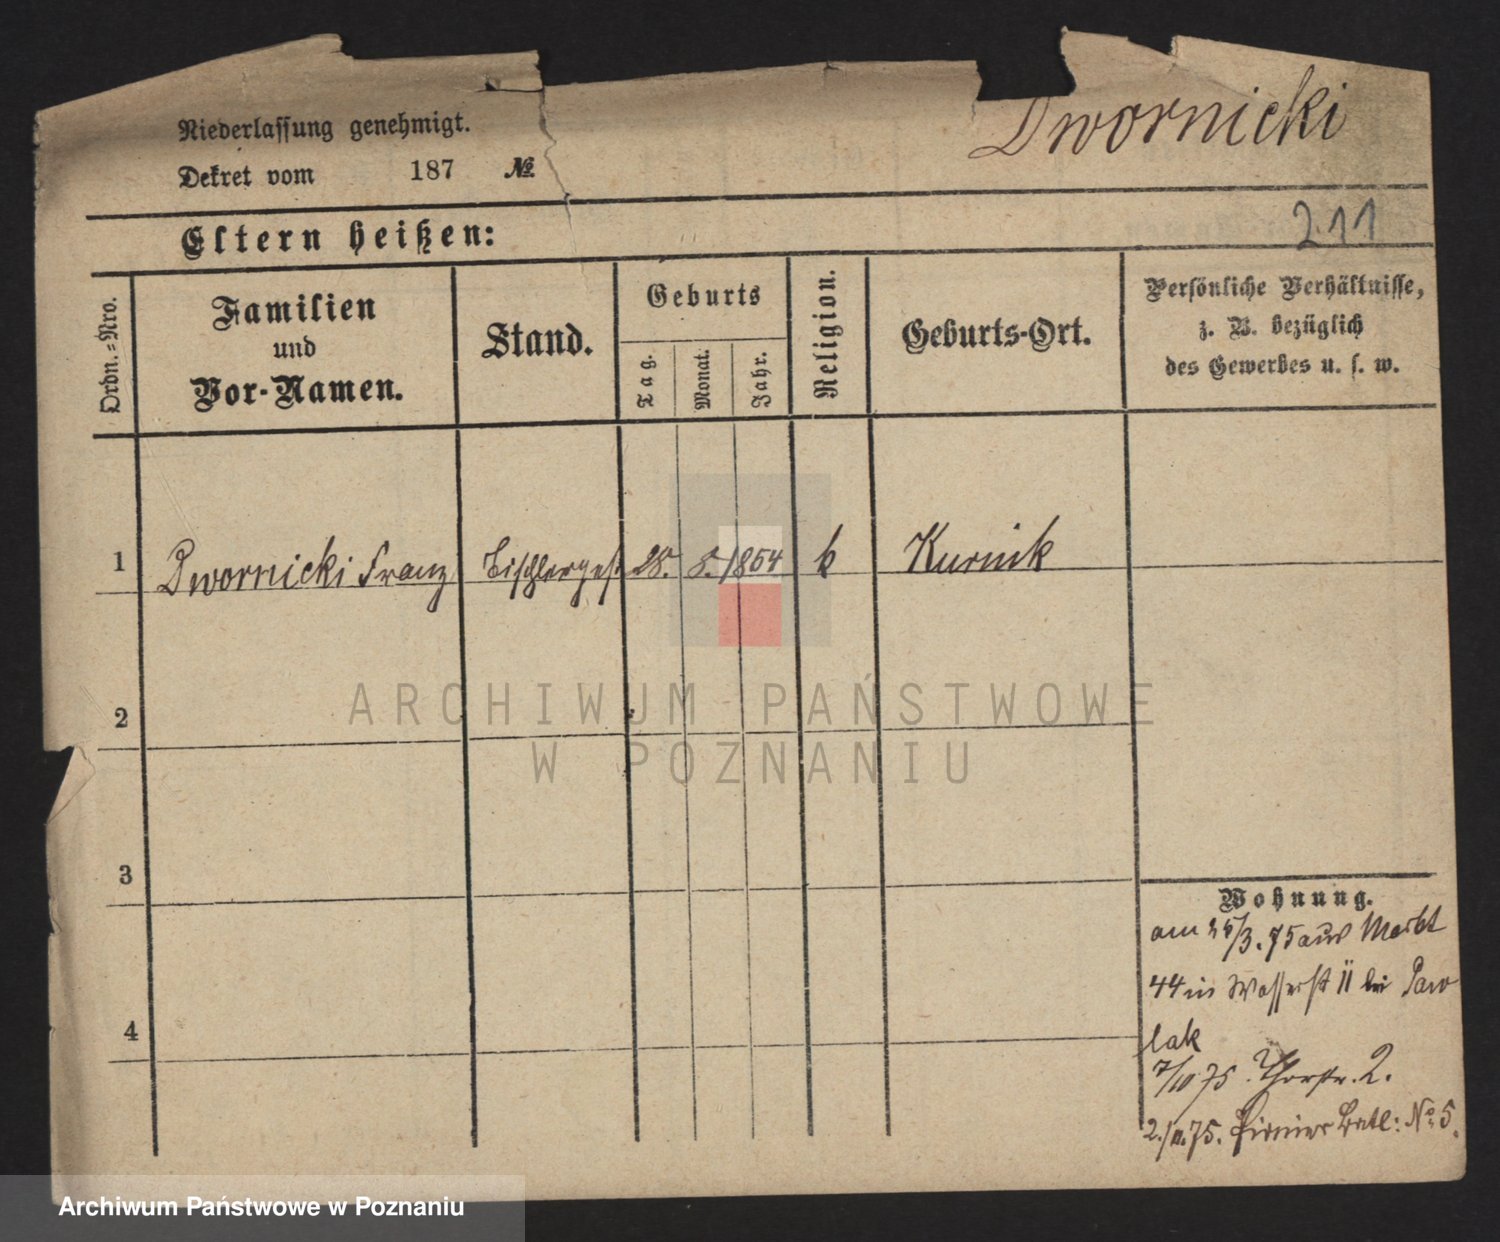 Dwornicki
Niederlassung genehmigt.
Dekret vom 187 №
211
Eltern heißen:
Ordn.=Nro.
Familien
und
Vor-Namen.
Stand.
Geburts
Tag.
Monat.
Jahr.
Religion.
Geburts-Ort.
Persönliche Verhältnisse,
z. B. bezüglich
des Gewerbes u. s. w.
1 Dwornicki Franz Tischlerges 28. 8. 1854 k Kurnik
2
3
4
Wohnung.
am 25/3. 75 aus Markt
44 in Wasserst 11 bei Paw
lak
7/10 75. Thorstr. 2.
75. Pionier Batl: No 5.
ARCHIWUM PAŃSTWOWE
W POZNANIU
Archiwum Państwowe w Poznaniu